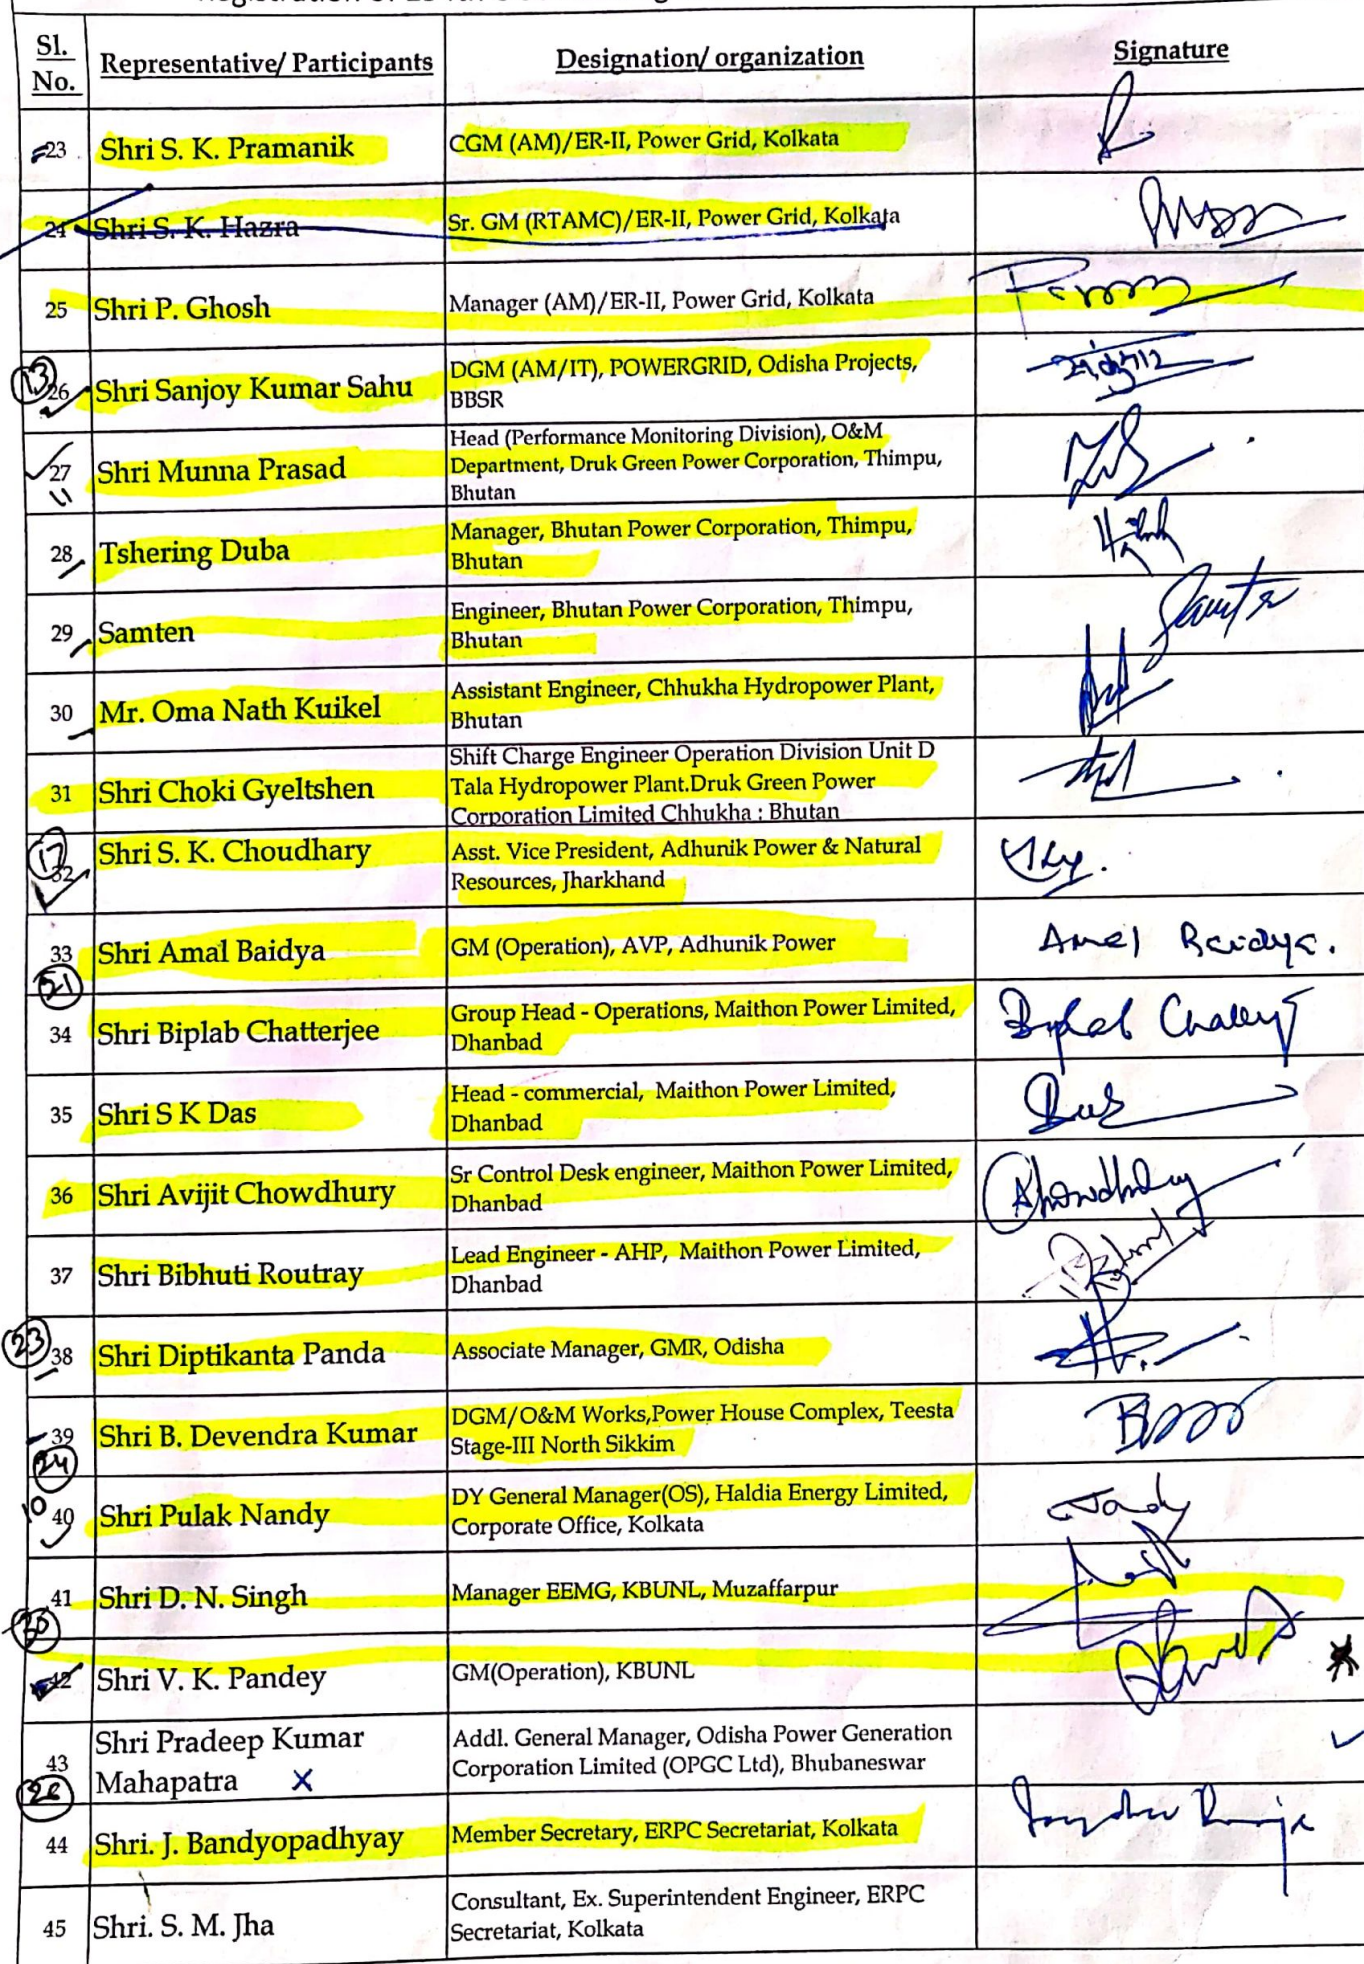 Sl. No. Representative/ Participants Designation/ organization Signature
23 Shri S. K. Pramanik CGM (AM)/ER-II, Power Grid, Kolkata
24 Shri S. K. Hazra Sr. GM (RTAMC)/ER-II, Power Grid, Kolkata
25 Shri P. Ghosh Manager (AM)/ER-II, Power Grid, Kolkata
13
26 Shri Sanjoy Kumar Sahu DGM (AM/IT), POWERGRID, Odisha Projects,
BBSR
Head (Performance Monitoring Division), O&M
27 Shri Munna Prasad Department, Druk Green Power Corporation, Thimpu,
11 Bhutan
28 Tshering Duba Manager, Bhutan Power Corporation, Thimpu,
Bhutan
29 Samten Engineer, Bhutan Power Corporation, Thimpu,
Bhutan
30 Mr. Oma Nath Kuikel Assistant Engineer, Chhukha Hydropower Plant,
Bhutan
Shift Charge Engineer Operation Division Unit D
31 Shri Choki Gyeltshen Tala Hydropower Plant.Druk Green Power
Corporation Limited Chhukha : Bhutan
17
32 Shri S. K. Choudhary Asst. Vice President, Adhunik Power & Natural
Resources, Jharkhand
33 Shri Amal Baidya GM (Operation), AVP, Adhunik Power Amal Baidya.
21
34 Shri Biplab Chatterjee Group Head - Operations, Maithon Power Limited,
Dhanbad
35 Shri S K Das Head - commercial, Maithon Power Limited,
Dhanbad
36 Shri Avijit Chowdhury Sr Control Desk engineer, Maithon Power Limited,
Dhanbad
37 Shri Bibhuti Routray Lead Engineer - AHP, Maithon Power Limited,
Dhanbad
23
38 Shri Diptikanta Panda Associate Manager, GMR, Odisha
39 Shri B. Devendra Kumar DGM/O&M Works,Power House Complex, Teesta
24 Stage-III North Sikkim
10
40 Shri Pulak Nandy DY General Manager(OS), Haldia Energy Limited,
Corporate Office, Kolkata
41 Shri D. N. Singh Manager EEMG, KBUNL, Muzaffarpur
30
42 Shri V. K. Pandey GM(Operation), KBUNL
43 Shri Pradeep Kumar Addl. General Manager, Odisha Power Generation
Mahapatra X Corporation Limited (OPGC Ltd), Bhubaneswar
44 Shri. J. Bandyopadhyay Member Secretary, ERPC Secretariat, Kolkata
45 Shri. S. M. Jha Consultant, Ex. Superintendent Engineer, ERPC
Secretariat, Kolkata